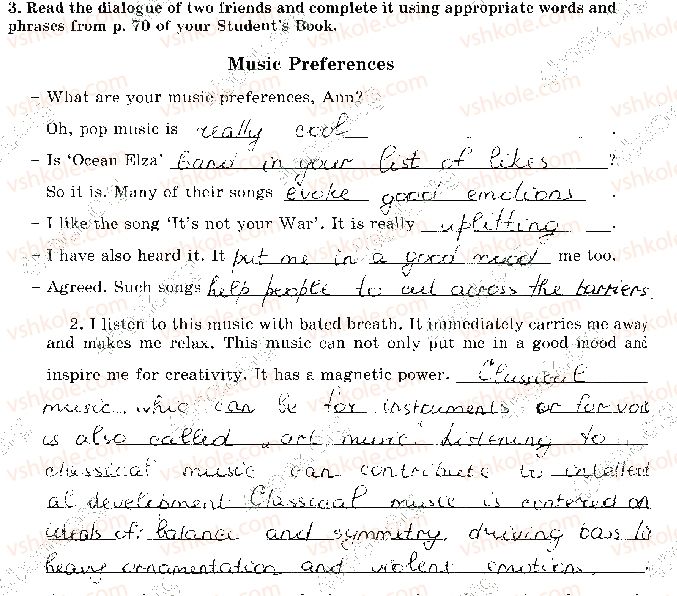 3. Read the dialogue of two friends and complete it using appropriate words and
phrases from p. 70 of your Student's Book.
Music Preferences
– What are your music preferences, Ann?
Oh, pop music is really cool .
– Is 'Ocean Elza' band in your list of likes ?
So it is. Many of their songs evoke good emotions .
– I like the song 'It's not your War'. It is really uplitting .
– I have also heard it. It put me in a good mood me too.
– Agreed. Such songs help people to cut across the barriers.
2. I listen to this music with bated breath. It immediately carries me away
and makes me relax. This music can not only put me in a good mood and
inspire me for creativity. It has a magnetic power. Classical
music, whic can be for instruments or for voic
is also called „art music". Listening to
classical music can contribute to intellect
al development. Classical music is centered on
ideals of: balance and symmetry, driving bass to
heavy ornamentation and violent emotions.
vshkole.com